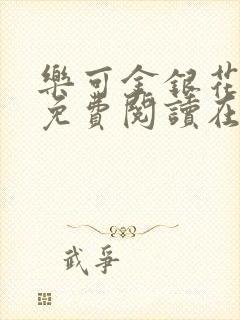 樂可金銀花
免費閱讀在
武爭